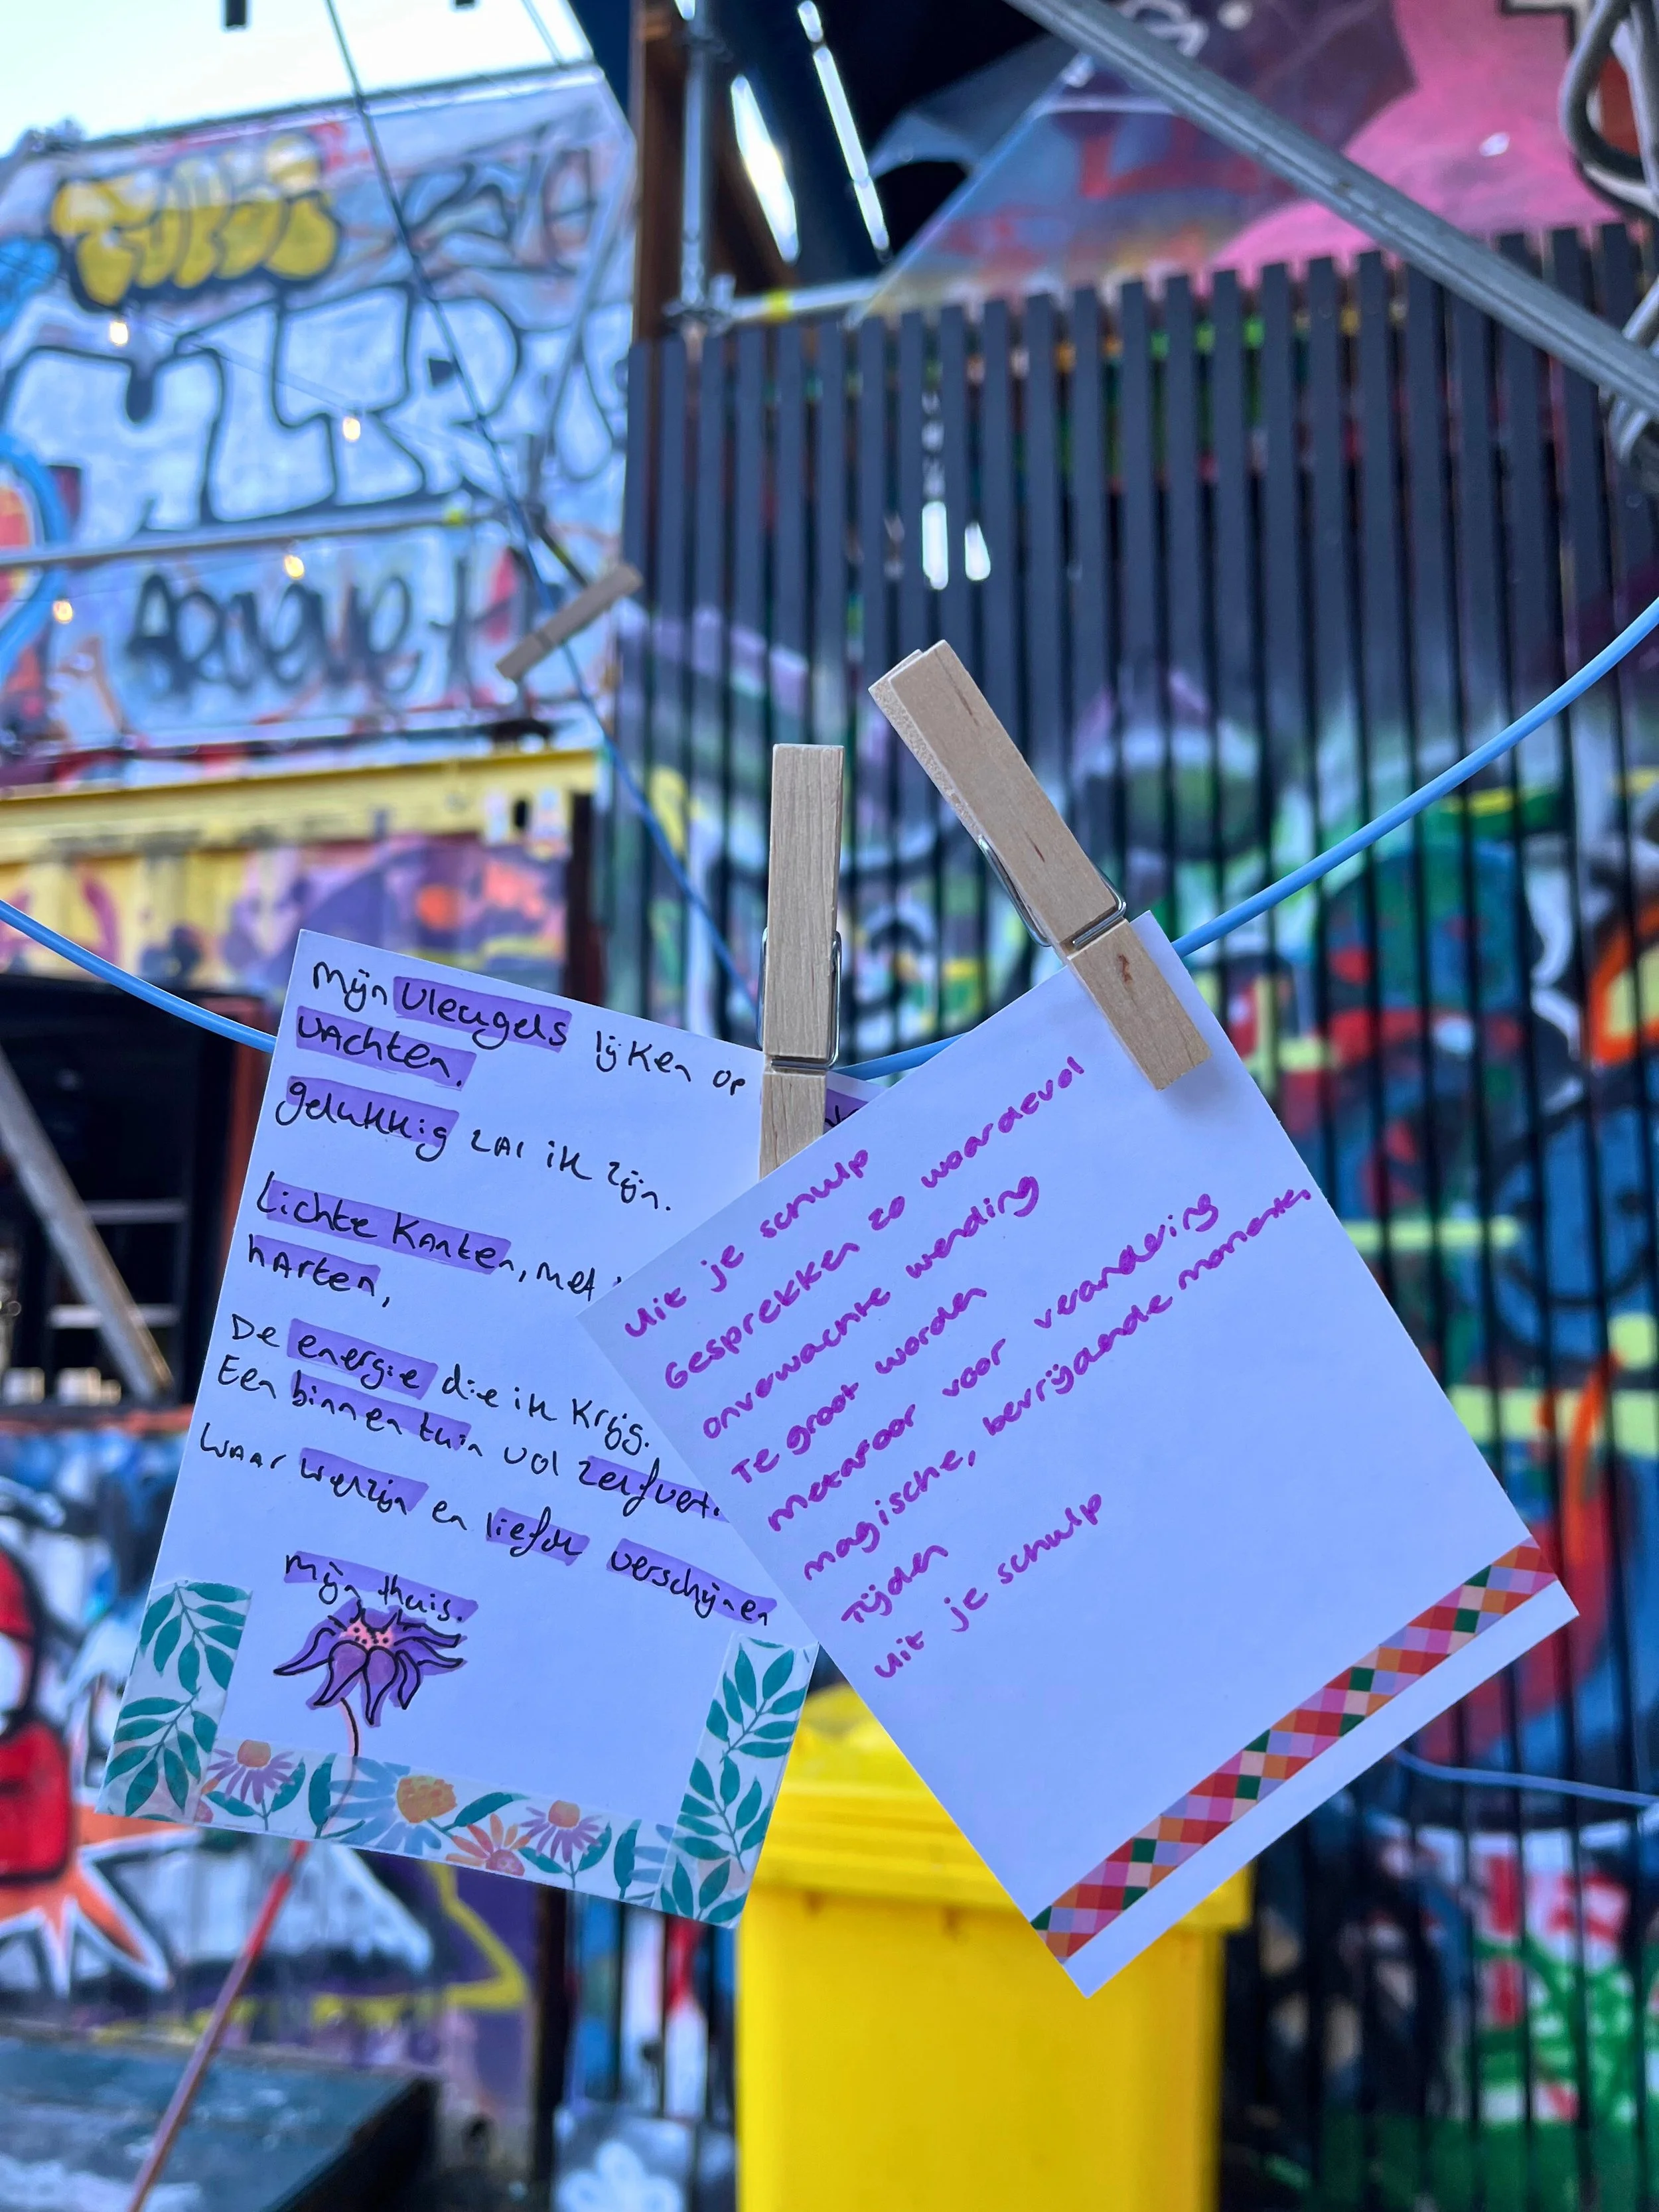 Mijn vleugels lijken op
wachten.
gelukkig zal ik zijn.
Lichte Kanten, met
harten,
De energie die ik Krijg.
Een binnentuin vol
Waar en liefde verschijnen
Mijn thuis.
Uit je schulp
Gesprekken zo waardevol
onverwachte wending
Te groot worden
metafoor voor verandering
magische, bevrijdende momenten
Tijden
Uit je schulp